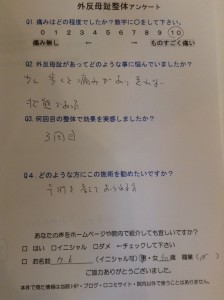 外反母趾整体アンケート
Q1.痛みはどの程度でしたか?数字に○をして下さい。
0 1 2 3 4 5 6 7 8 9 10
痛み無し ← → ものすごく痛い
Q2.外反母趾があってどのような事に悩んでいましたか?
少し歩くと痛みがあって
状態であった
Q3.何回目の整体で効果を実感しましたか?
3回目
Q4.どのような方にこの施術を勧めたいですか?
あなたの声をホームページや院内で紹介しても宜しいですか?
□ はい □イニシャル □ダメ ←チェックして下さい
□ お名前 (イニシャル可) 男・女 歳 職業( )
ご協力ありがとうございました。
本件で得た情報は当院HP・ブログ・口コミサイト・院内以外で使うことはありません。